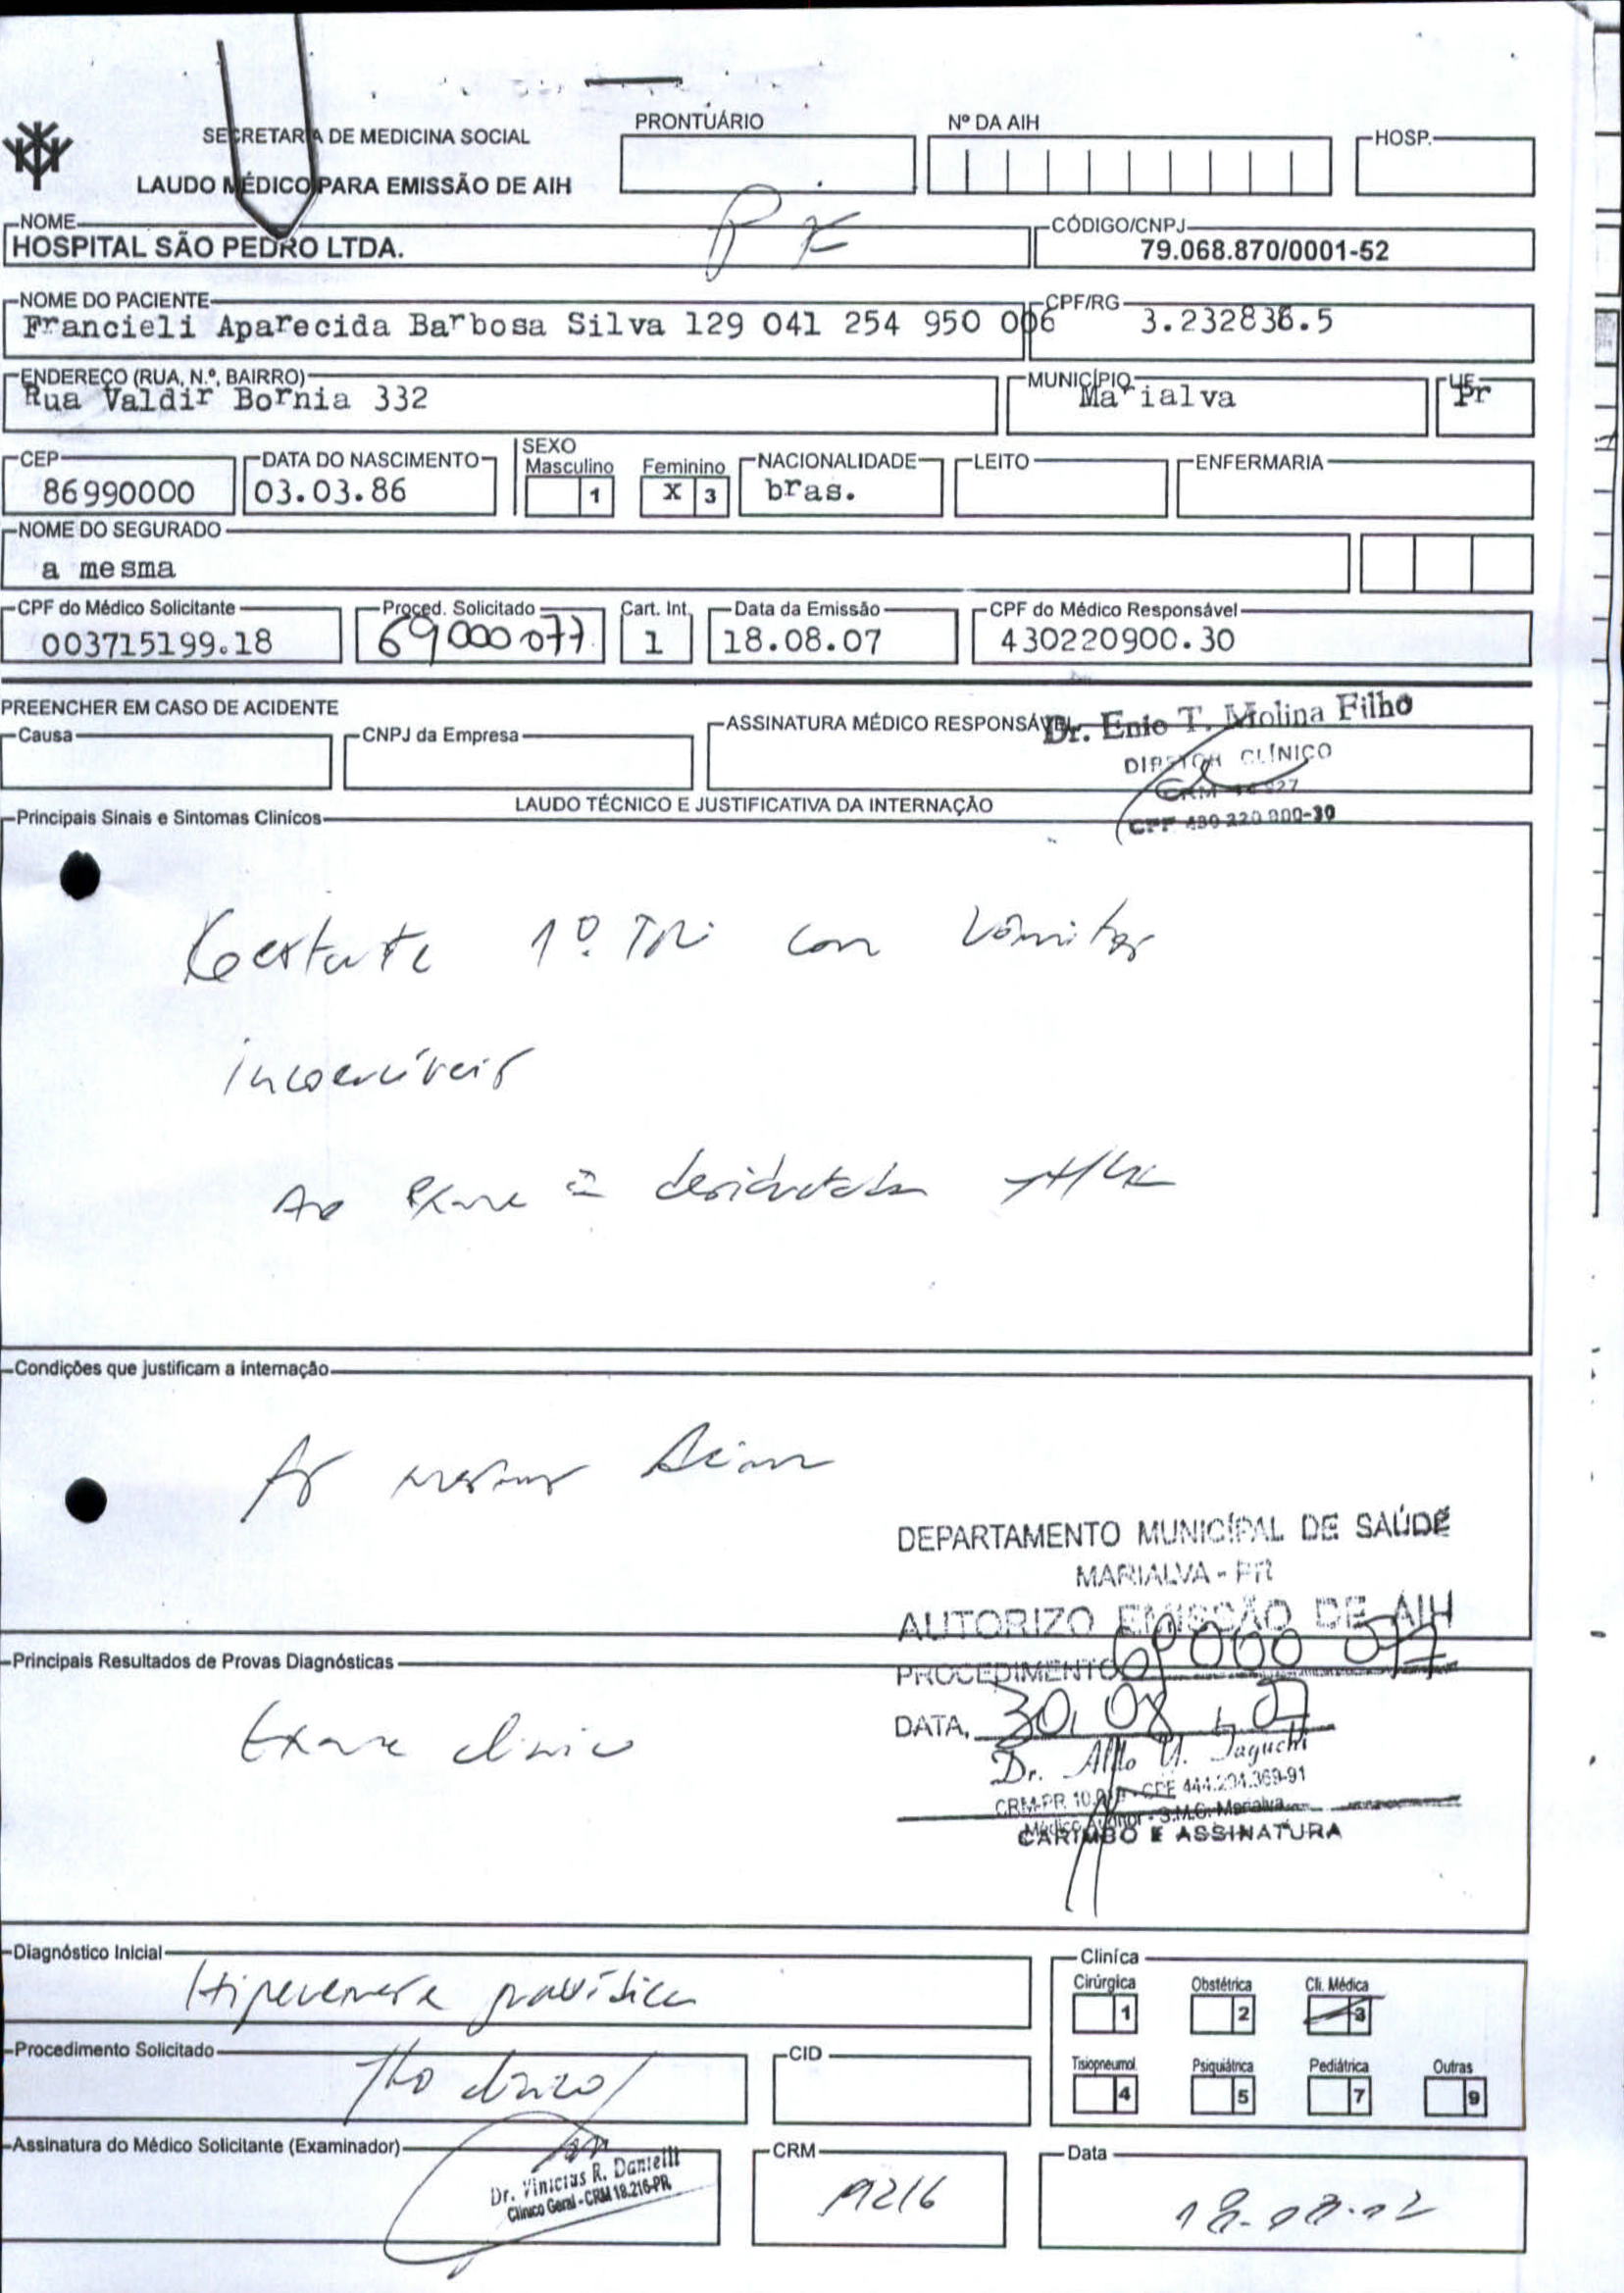 SECRETARIA DE MEDICINA SOCIAL
LAUDO MÉDICO PARA EMISSÃO DE AIH
PRONTUÁRIO
Nº DA AIH
HOSP.
NOME
HOSPITAL SÃO PEDRO LTDA.
CÓDIGO/CNPJ
79.068.870/0001-52
NOME DO PACIENTE
Francieli Aparecida Barbosa Silva 129 041 254 950 006
CPF/RG
3.232838.5
ENDEREÇO (RUA, N.º, BAIRRO)
Rua Valdir Bornia 332
MUNICÍPIO
Marialva
UF
Pr
CEP
86990000
DATA DO NASCIMENTO
03.03.86
SEXO
Masculino 1
Feminino X 3
NACIONALIDADE
bras.
LEITO
ENFERMARIA
NOME DO SEGURADO
a mesma
CPF do Médico Solicitante
003715199.18
Proced. Solicitado
69000077
Cart. Int.
1
Data da Emissão
18.08.07
CPF do Médico Responsável
430220900.30
PREENCHER EM CASO DE ACIDENTE
Causa
CNPJ da Empresa
ASSINATURA MÉDICO RESPONSÁVEL
Dr. Enio T. Molina Filho
DIRETOR CLÍNICO
CPF 430 220 900-30
LAUDO TÉCNICO E JUSTIFICATIVA DA INTERNAÇÃO
Principais Sinais e Sintomas Clinicos
Gestante 1º Tri com vômitos
incoercíveis
Ao exame = desidratada
Condições que justificam a internação
As mesmas acima
DEPARTAMENTO MUNICIPAL DE SAÚDE
MARIALVA - PR
AUTORIZO EMISSÃO DE AIH
PROCEDIMENTO 69000 077
Principais Resultados de Provas Diagnósticas
Exame clinico
DATA, 30, 08, 07
Dr. Aldo U. Taguchi
CRM-PR CPF 444.204.369-91
Médico Auditor - S.M.S. Marialva
CARIMBO E ASSINATURA
Diagnóstico Inicial
Hiperemese gravídica
Clínica
Cirúrgica 1
Obstétrica 2
Cli. Médica 3
Tisiopneumol. 4
Psiquiátrica 5
Pediátrica 7
Outras 9
Procedimento Solicitado
Tto clinico
CID
Assinatura do Médico Solicitante (Examinador)
Dr. Vinicius R. Danielli
Clínico Geral - CRM 18.216-PR
CRM
18216
Data